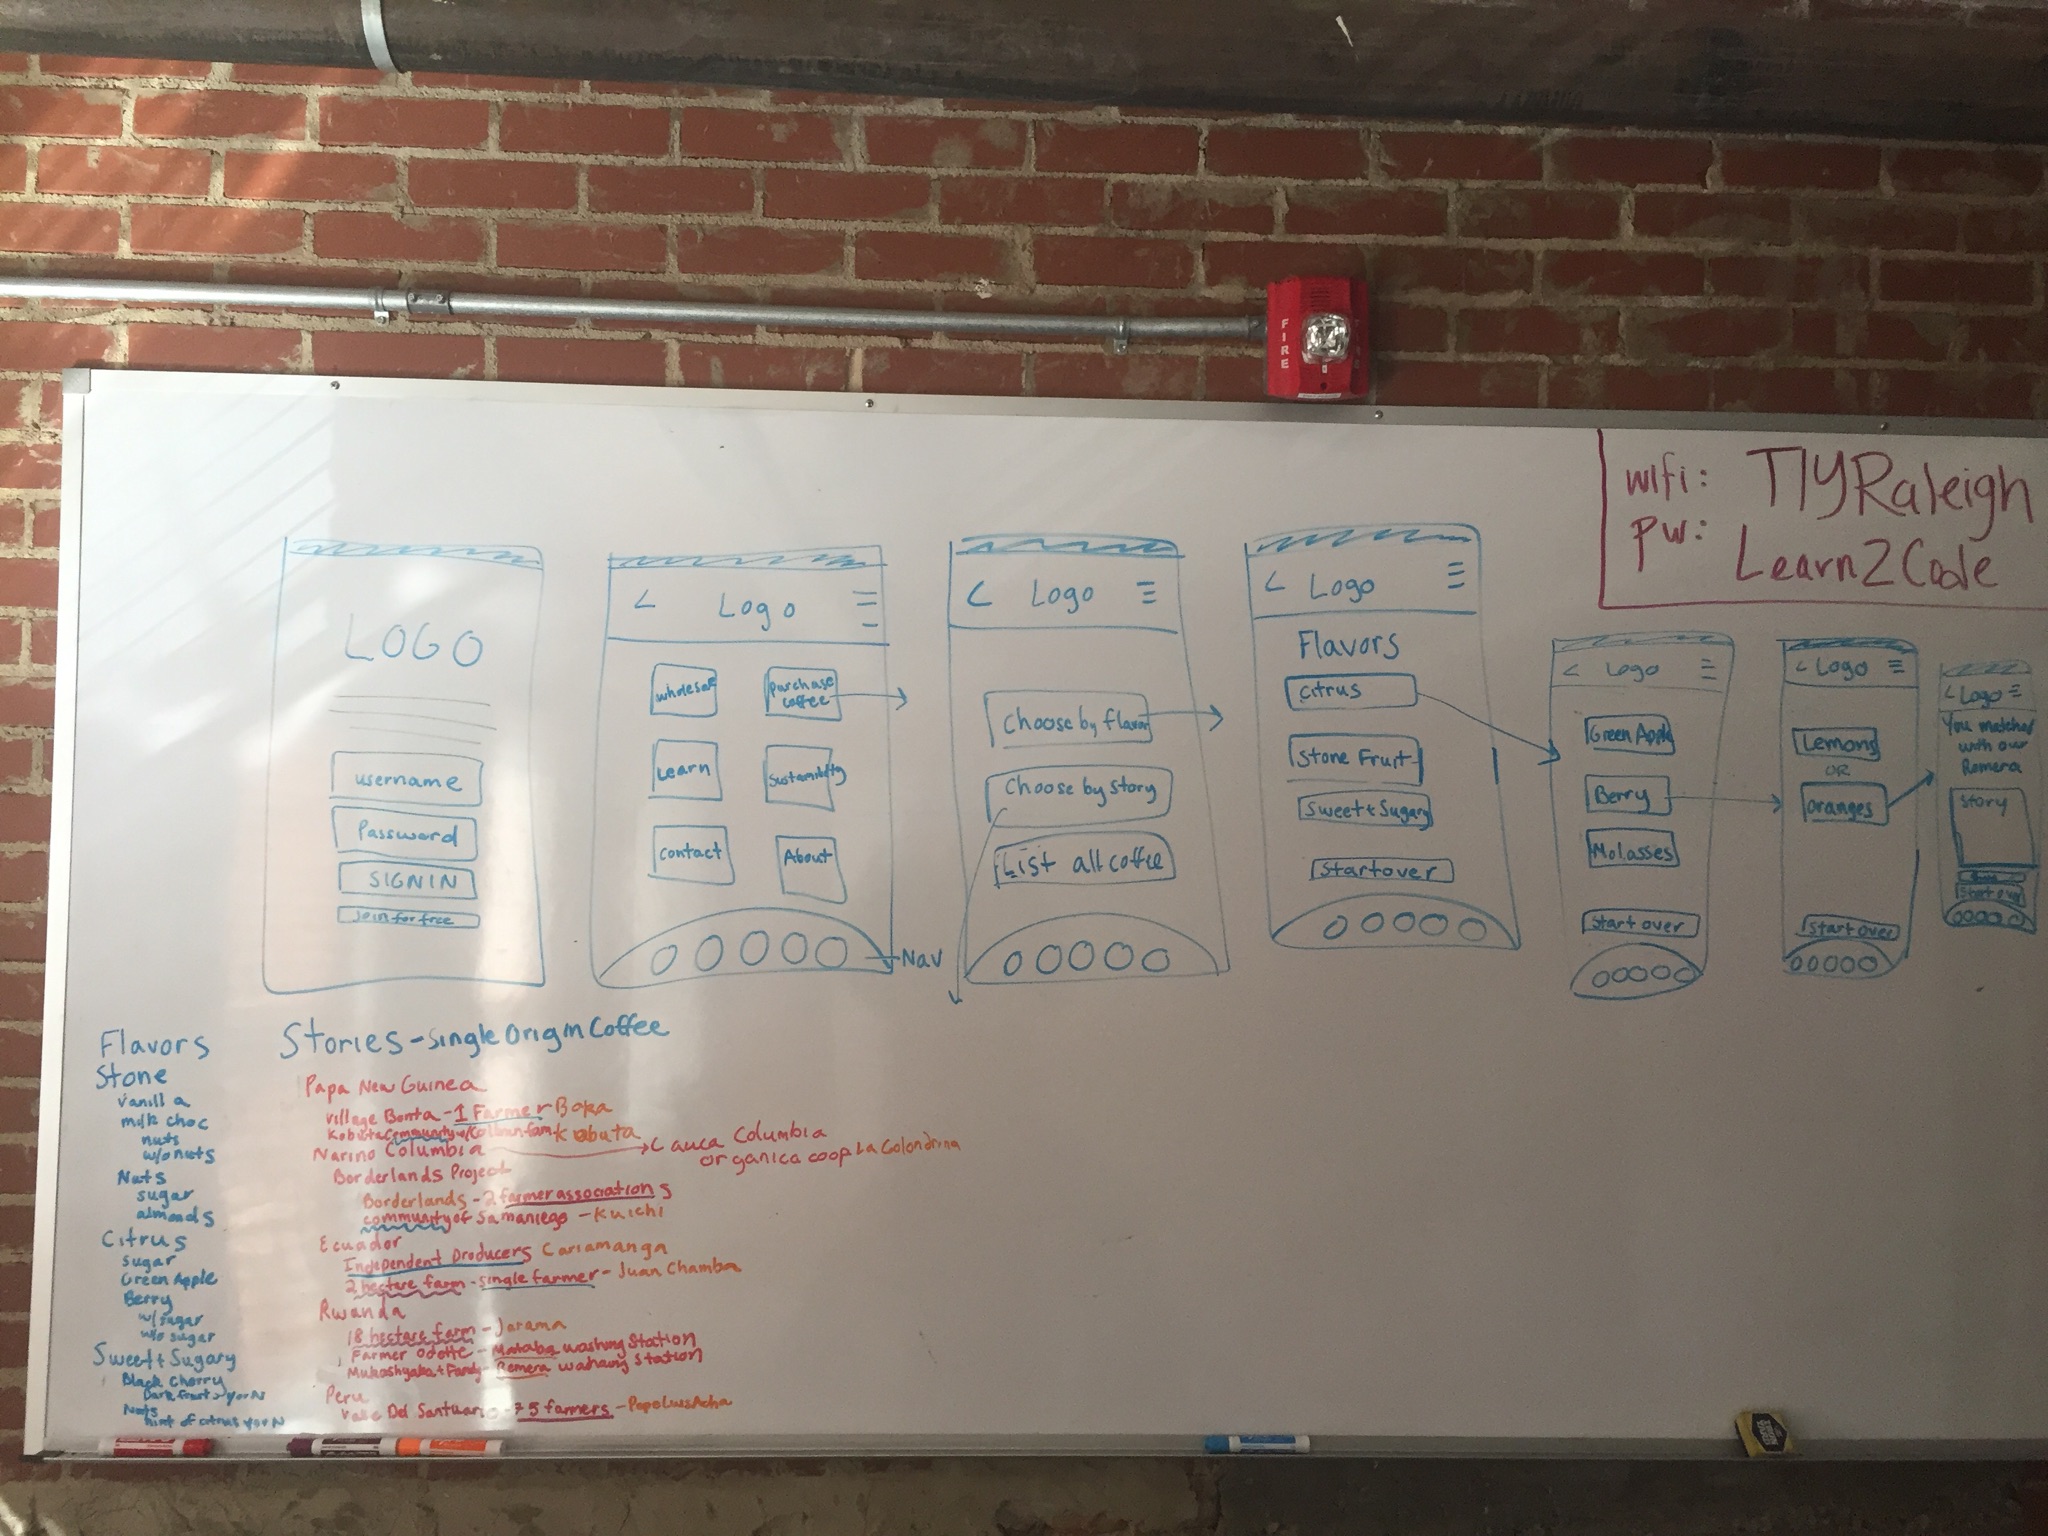 FIRE
wifi: TIYRaleigh
pw: Learn2Code
LOGO
username
Password
SIGN IN
Join for free
< Logo
wholesale
purchase
coffee
Learn
Sustainability
contact
About
Nav
< Logo
Choose by flavor
Choose by Story
List all coffee
< Logo
Flavors
citrus
Stone Fruit
Sweet + Sugary
Start over
< Logo
Green Apple
Berry
Molasses
Start over
< Logo
Lemons
OR
Oranges
Start over
< Logo
You matched
with our
Remera
Story
Start over
Flavors
Stone
Vanilla
milk choc
nuts
w/o nuts
Nuts
sugar
almonds
Citrus
sugar
Green Apple
Berry
w/ sugar
w/o sugar
Sweet + Sugary
Black Cherry
Dark fruit > y or N
Nuts
hint of citrus y or N
Stories - Single Origin Coffee
Papa New Guinea
Village Bonta - 1 Farmer Boka
Kobuta Community w/ Kobuta
Narino Columbia
Cauca Columbia
organica coop La Golondrina
Borderlands Project
Borderlands - 2 farmer associations
community of Samaniego - Kuichi
Ecuador
Independent Producers Cariamanga
2 hectare farm - single farmer - Juan Chamba
Rwanda
18 hectare farm - Jarama
Farmer Odette - Mataba washing Station
Mukashyaka + Family - Remera washing station
Peru
Valle Del Santuario - 75 farmers - Pepe Luis Acha